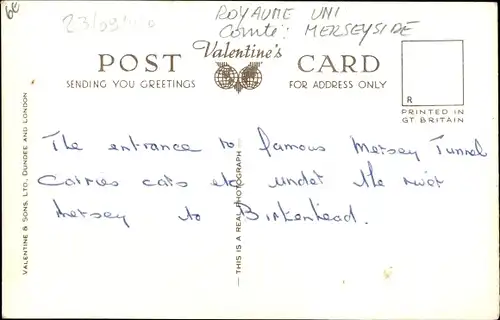 ROYAUME UNI
Comté: MERSEYSIDE
POST Valentine's CARD
SENDING YOU GREETINGS FOR ADDRESS ONLY
R
PRINTED IN
GT BRITAIN
VALENTINE & SONS, LTD. DUNDEE AND LONDON
THIS IS A REAL PHOTOGRAPH
The entrance to famous Mersey Tunnel
Carries cars etc under the river
Mersey to Birkenhead.